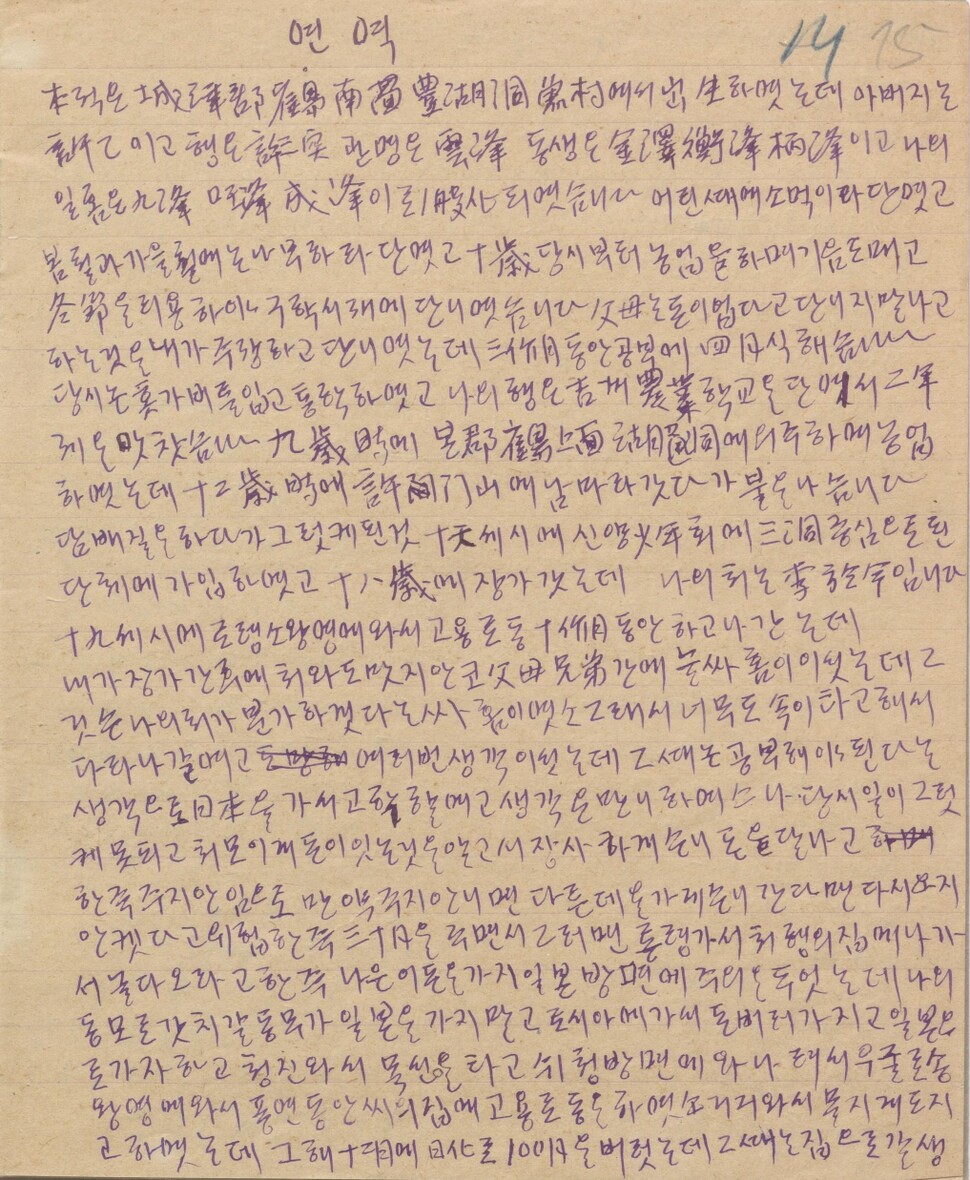 연 역
14 15
本적은 城津郡 鶴南面 豊湖洞 村에서 出生하엿는데 아버지는
이고 형은 許 관명은 雲峰 동생은 金澤 衡峰 柄峰이고 나의
일홈은 九峰 成峰이로 되엿습니다 어린 시대에 소먹이라 단엿고
봄철과 가을철에는 나무하라 단엿고 十歲 당시부터 농업을 하며 기음도 매고
冬節을 리용하야 단니엿습니다 父母는 돈이 업다고 단니지 말나고
하는 것을 내가 주장하고 단니엿는데 三個月 동안 공부에 四円식 해습니다
당시는 홋가바를 입고 통학하엿고 나의 형은 농業학교을 단여서 二年
제을 맛찻습니다 九歲 에 본郡 鶴上面 湖洞에 의주하며 농업
하엿는데 十二歲 에 許 山에 남마라 갓다가 불을 나습니다
담배질을 하다가 그럿케 된 것 十六세 시에 신 少年회에 三洞 중심으로 된
단체에 가입하엿고 十八歲에 장가 갓는데 나의 처는 李 입니다
十九세 시에 로령 소왕영에 와서 고용로동 十個月 동안 하고 나간는데
내가 장가간 후에 처와도 맛지 안코 父母兄弟간에 늘 싸홈이 이섯는데 그
것슨 나의 처가 본가 하겟다는 싸홈이엿소 그래서 너무도 속이 타고 해서
다라나갈여고 여러번 생각이 이섯는데 그 때는 공부해야 된다는
생각으로 日本을 가서 고학할여고 생각은 만니 하여스나 당시 일이 그럿
케 못되고 처모이게 돈이 잇는 것을 알고서 장사하게스니 돈을 달나고
한즉 주지 안임으로 만약 주지 안니면 다른 데을 가게스니 간다면 다시 오지
안켓다고 위협한즉 三十円을 주면서 그러면 가서 처형의 집에나 가
서 놀다 오라고 한즉 나은 이 돈을 가지 일본 방면에 주의을 두엇는데 나의
동모로 갓치 갈 동무가 일본을 가지 말고 로시아에 가서 돈 버러가지고 일본으
로 가자 하고 청진 와서 목선을 타고 방면에 와 나려서 우줄로 송
왕영에 와서 씨의 집에 고용로동을 하엿소 거긔 와서 물지게도 지
고 하엿는데 그 해 十一月에 日貨로 100円을 버럿는데 그 때는 집으로 갈 생